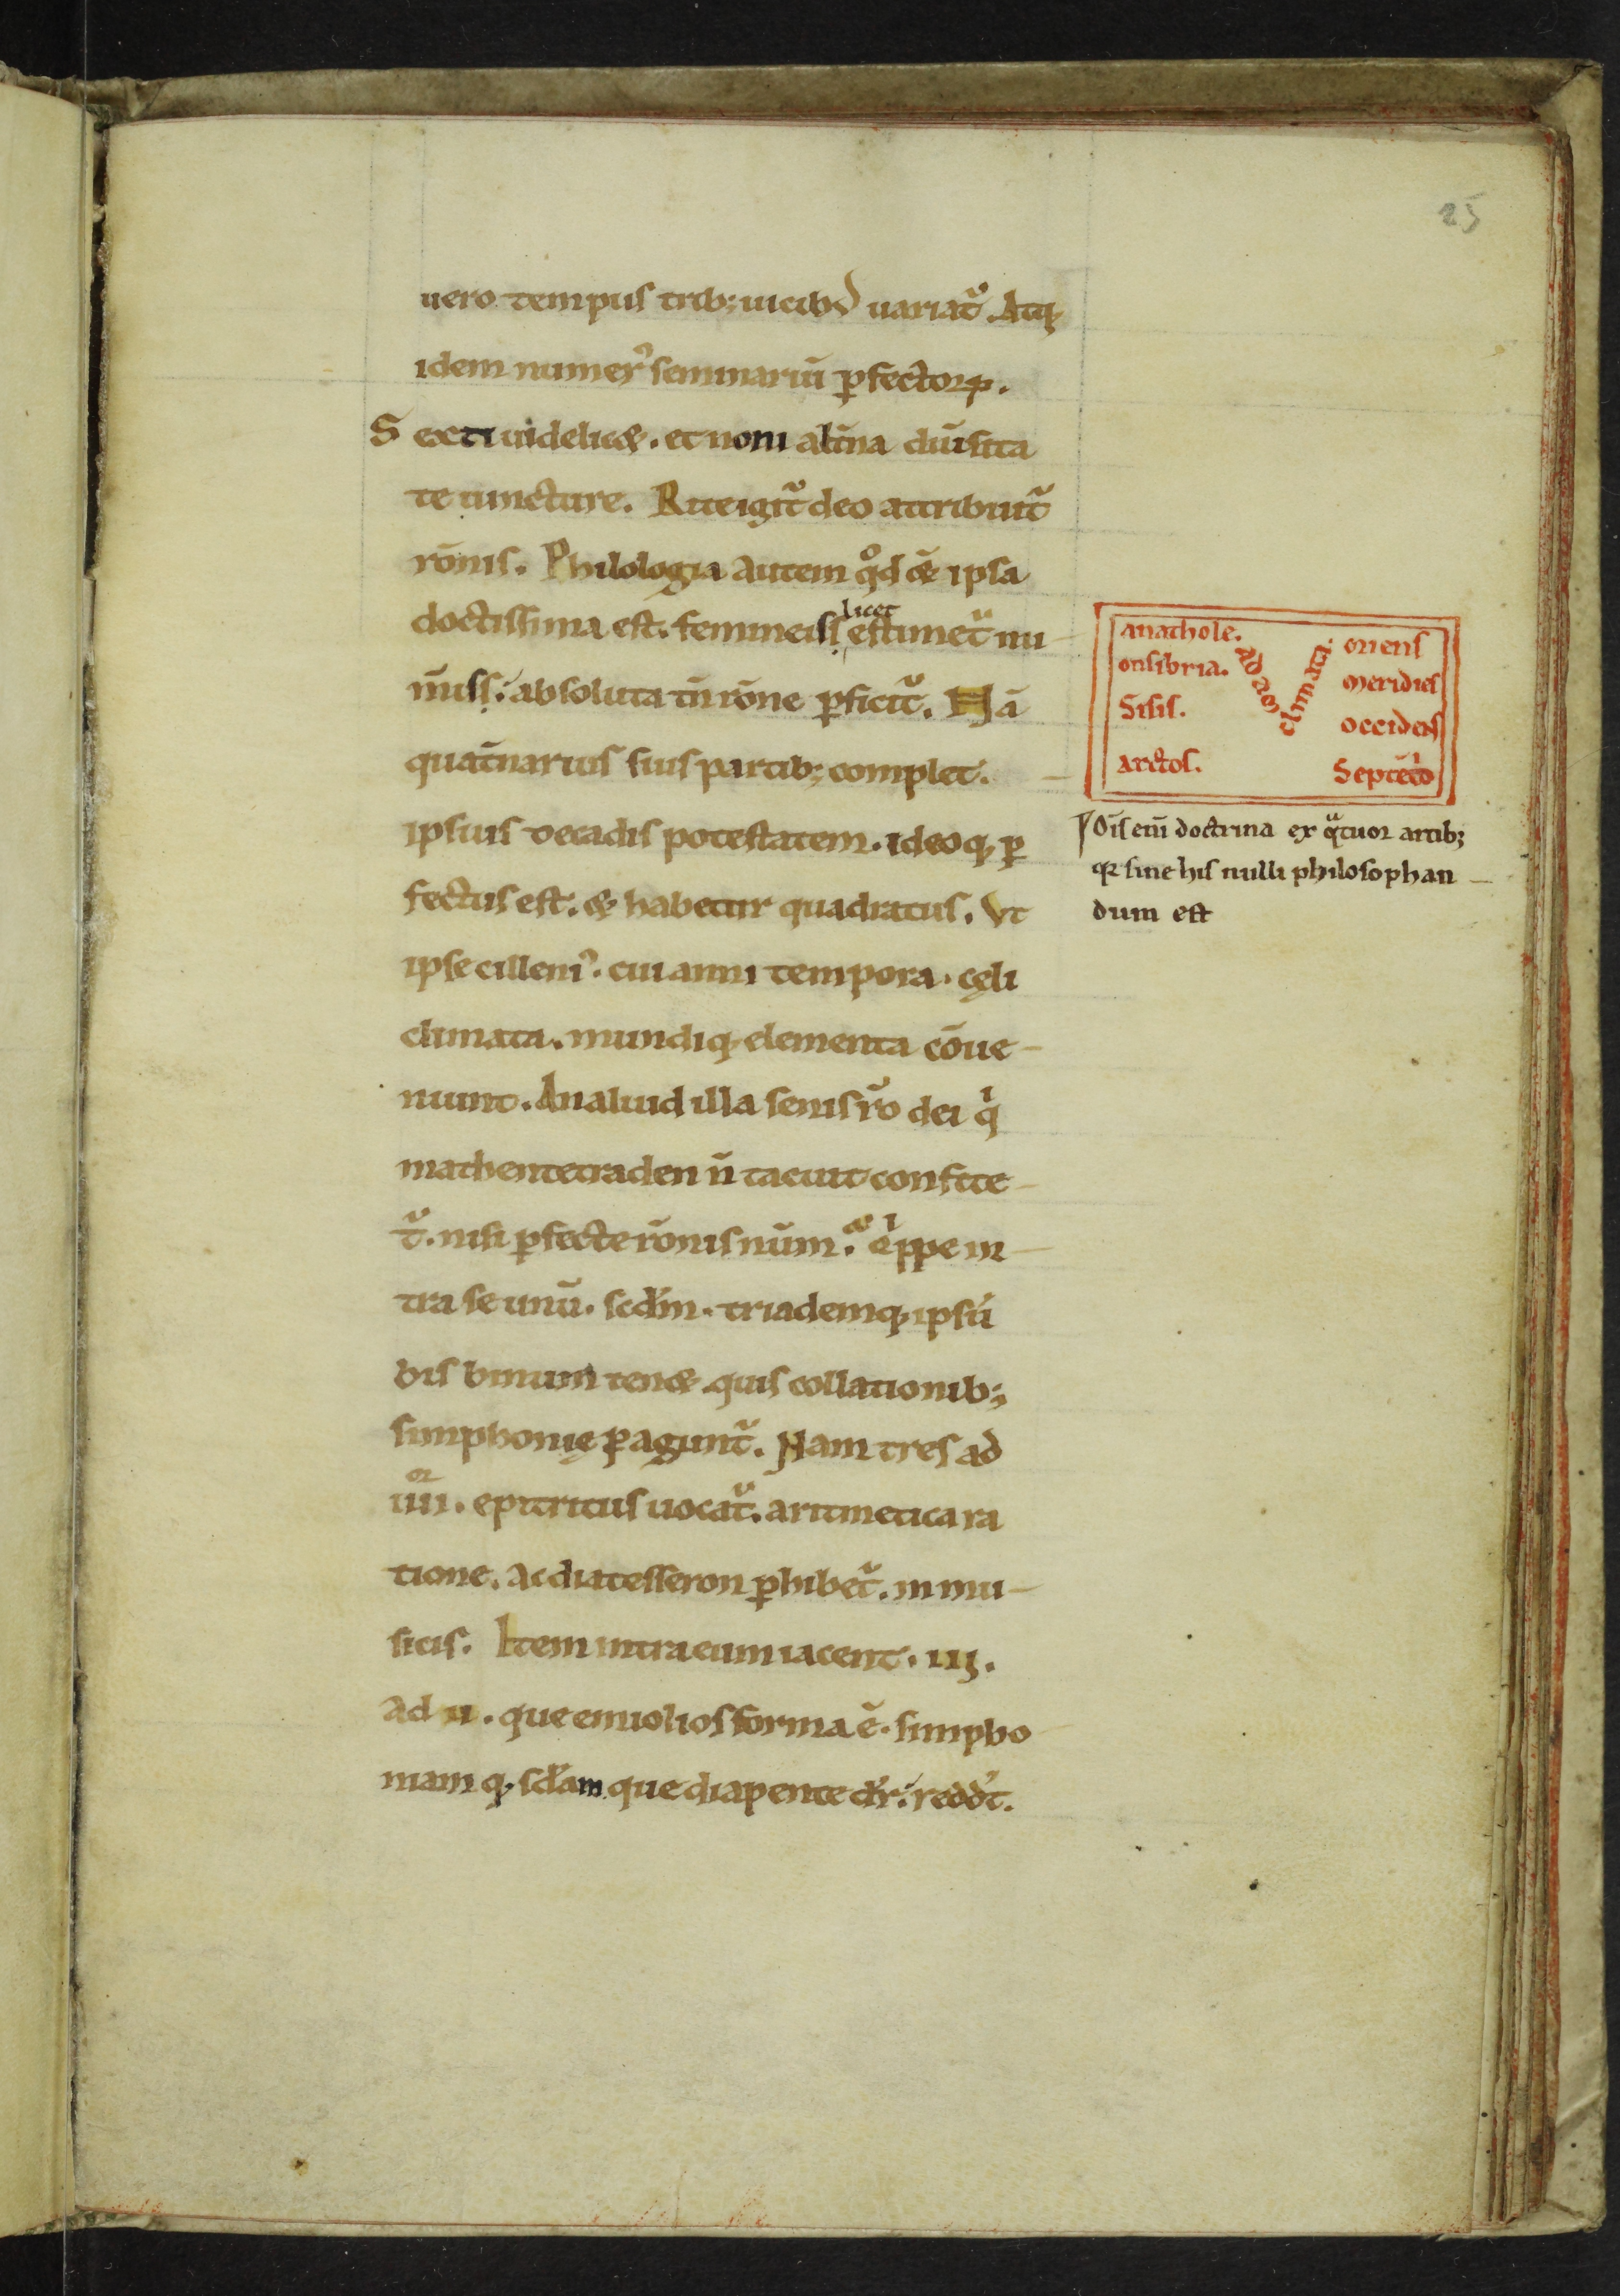 25
uero tempus trib; uicib; uariat᷑. Atq;
idem numer᷒ seminariū ꝑfectoꝝ.
Sexti uidelic&. et noni alt̄na diūsita
te iuncture. Rite igit᷑ deo attribuit᷑
rōnis. Philologia autem qd̊ & ipsa
doctissima est. femineis licet estimet᷑ nu
m̄iss; absoluta tn̄ rōne ꝑficit᷑. Nā
quat̄narius suis partib; complet.
ipsius decadis potestatem. ideoq; ꝑ
fectus est. & habetur quadratus. Vt
ipse cilleni᷒. cui anni tempora. cęli
climata. mundiq; elementa cōue
niunt. An aliud illa senis ro̅ dei qͥ
mathentetraden n̄ tacuit confite
t᷑. nisi ꝑfecte rōnis num̄. Qͥppe in
tra se unū. scd̄m. triademq; ipsū
bis binum ten& quis collationib;
simphonię ꝑagunt᷑. Nam tres ad
iiii.ͦʳ epitritus uocat᷑. aritmetica ra
tione. Ac diatesseron ꝑhibet᷑. in mu
sicis. Item intra eum iacent. iij.
ad ii. que emiolios forma ē. simpho
niam q; scd̄am que diapente dr̄; redd̄t.
anathole.
onsibria.
Sisis.
arctos.
climata
oriens
meridies
occidens
Septēt̄o
Oīs eni̅ doctrina ex qͣtuor artib;
qr sine his nulli philosophan
dum est